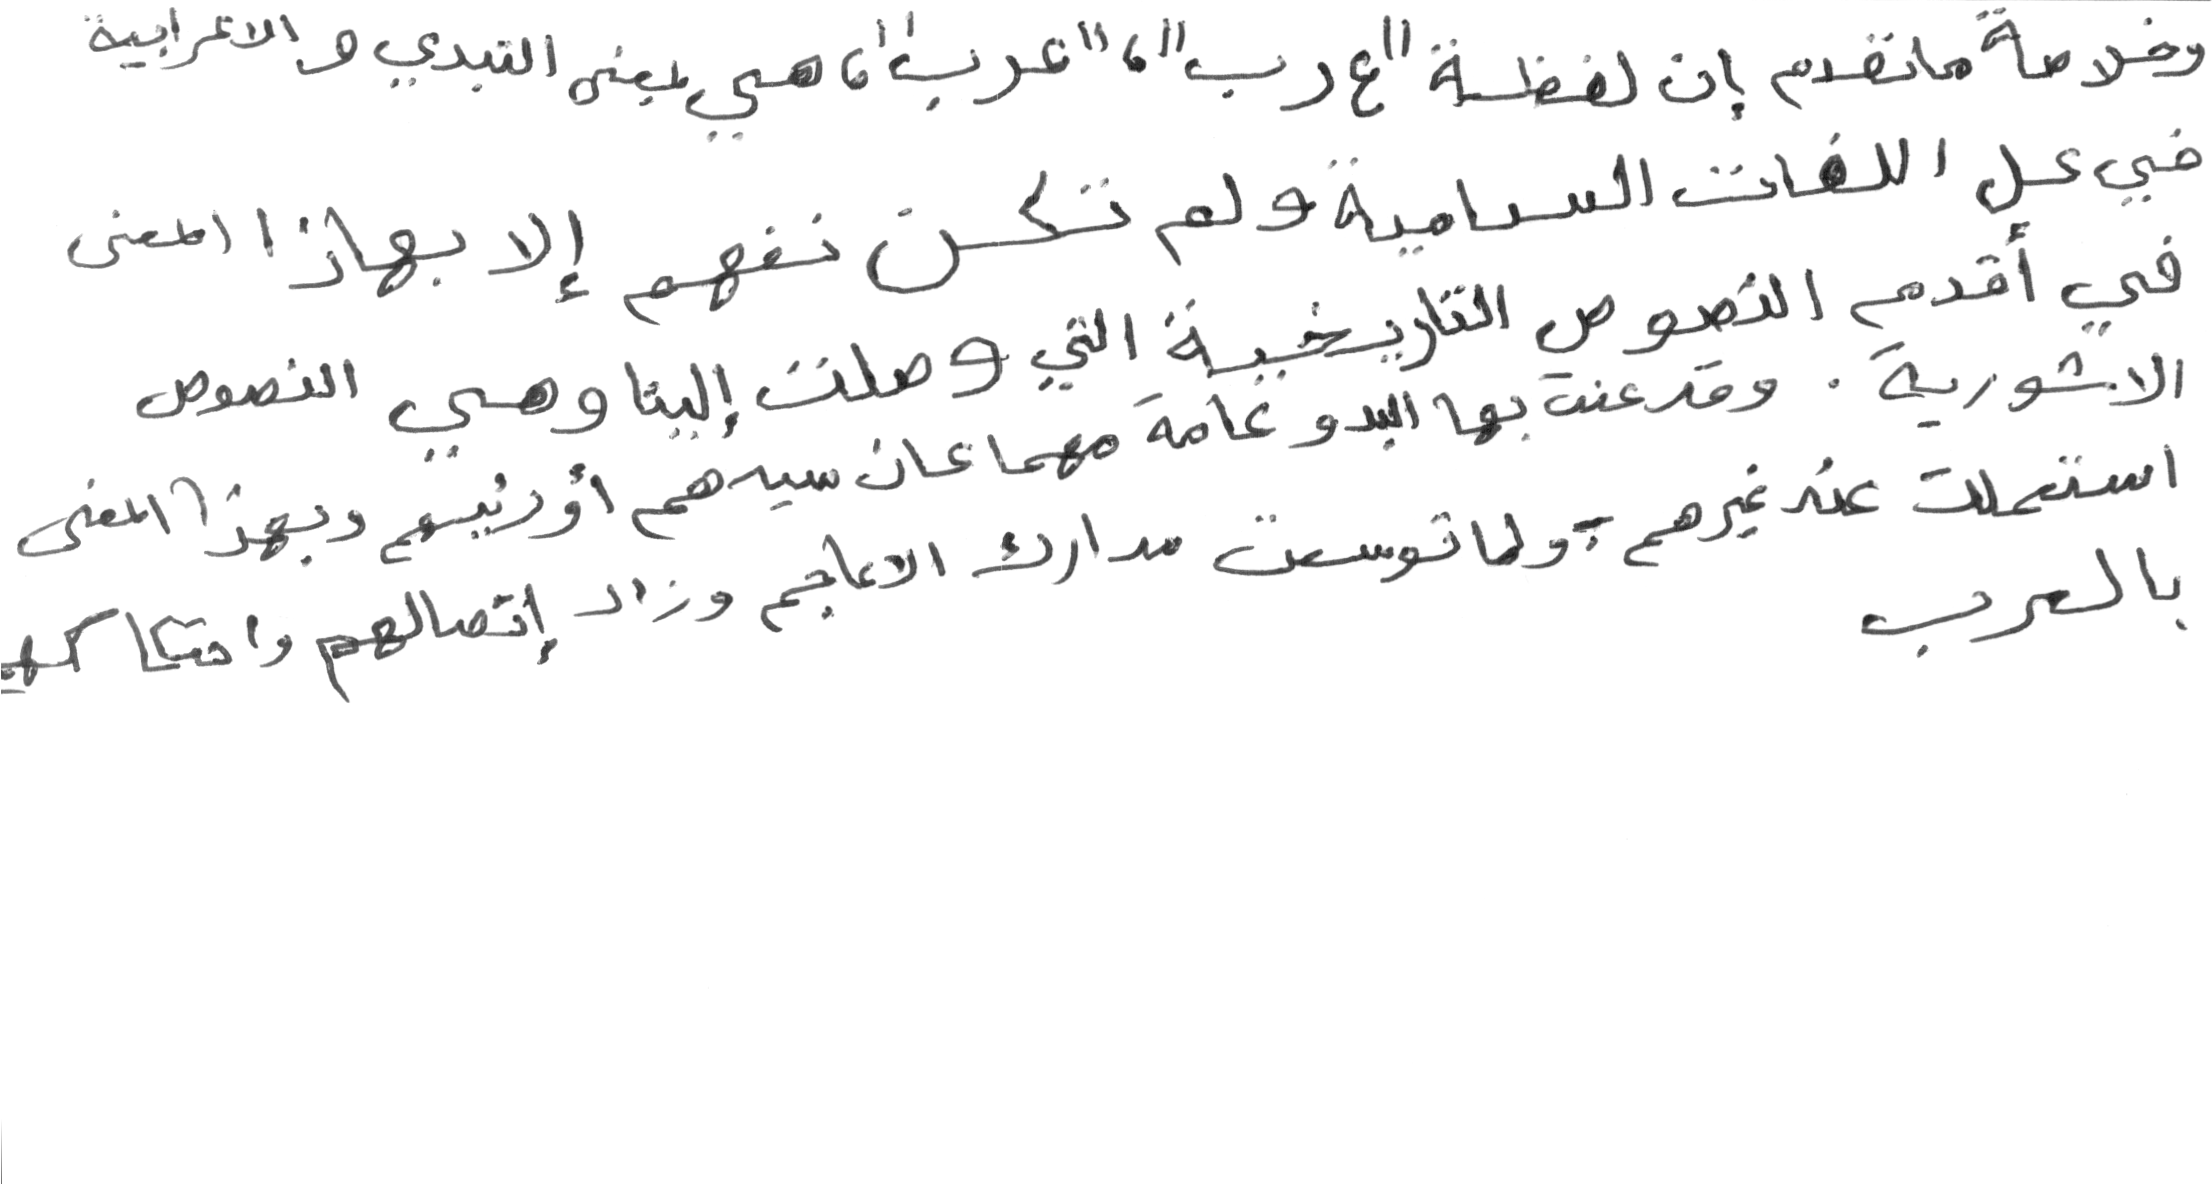 وخلاصة ماتقدم إن لفظة "ع رب"، "عرب"، هي بمعنى التبدي و الاعرابية
في كل اللغات السامية ولم تكن تفهم إلا بهاذا المعنى
في أقدم النصوص التاريخية التي وصلت إلينا وهي النصوص
الاشورية. وقد عنت بها البدو عامة مهما كان سيدهم أو رئيسهم وبهذا المعنى
استعملت عند غيرهم - ولما توسعت مدارك الاعاجم وزاد إتصالهم واحتكاكهم
بالعرب